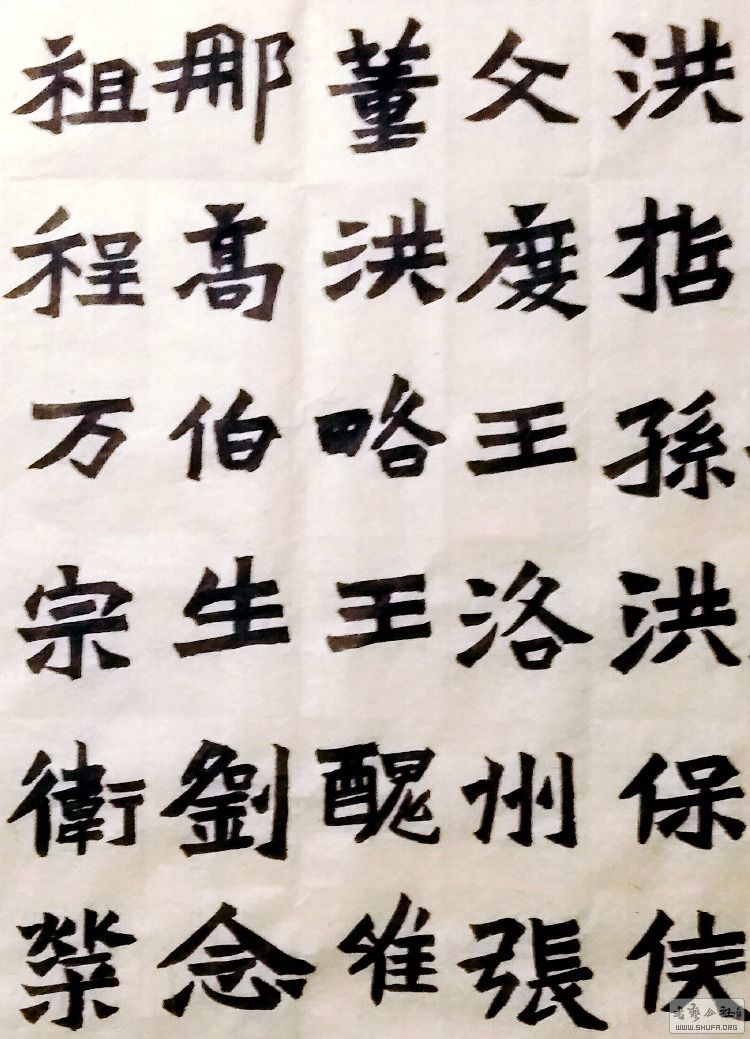 洪拈孫洪保侯
父度王洛州張
董洪略王醜雅
郍高伯生劉念
祖程万宗衛榮
WWW.SHUFA.ORG